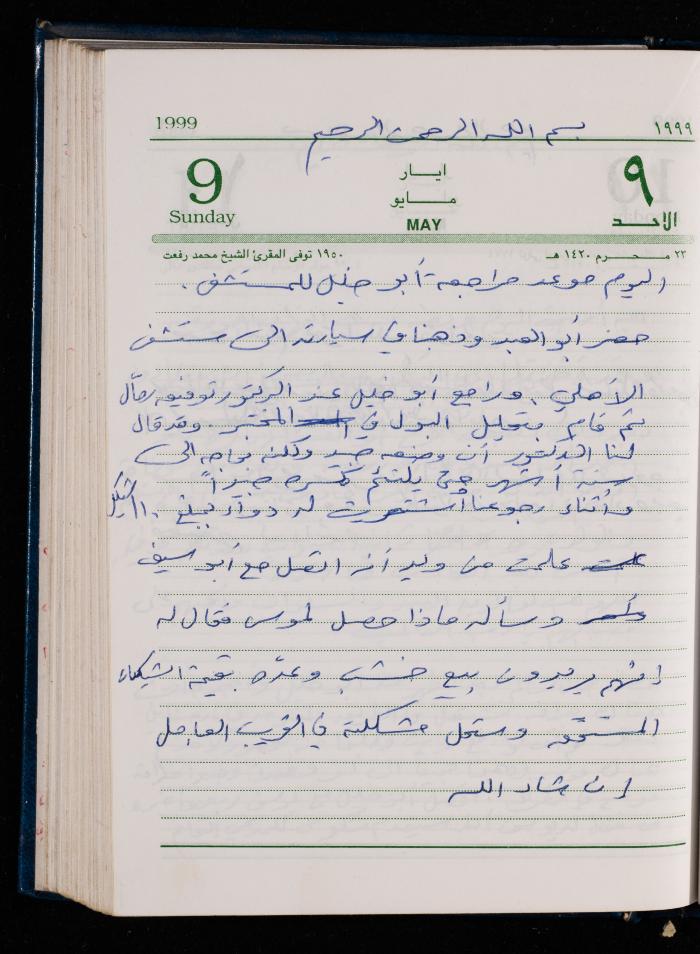 1999 بسم الله الرحمن الرحيم ١٩٩٩
9 ايار ٩
مايو
Sunday MAY الأحد
٢٣ محرم ١٤٢٠ هـ ١٩٥٠ توفى المقرئ الشيخ محمد رفعت
اليوم موعد مراجعة أبو خليل للمستشفى .
حضر أبو العبد وذهبنا في سيارته الى مستشفى
الأهلي . وراجع أبو خليل عند الدكتور توفيق
ثم قام بتحليل البول في المختبر . وقد قال
لنا الدكتور أن وضعه جيد ولكنه بحاجه الى
ستة أشهر حتى يلتئم كسره جيداً
وأثناء رجوعنا اشتريت له دواء بمبلغ ١١٠ شيكل
علمت من وليد أنه اتصل مع أبو سيف
وسأله ماذا حصل لموسى فقال له
إنهم يريدون بيع خشب وعدّه بقيمة الشيكات
المستحقه وستحل مشكلته في القريب العاجل
إن شاء الله